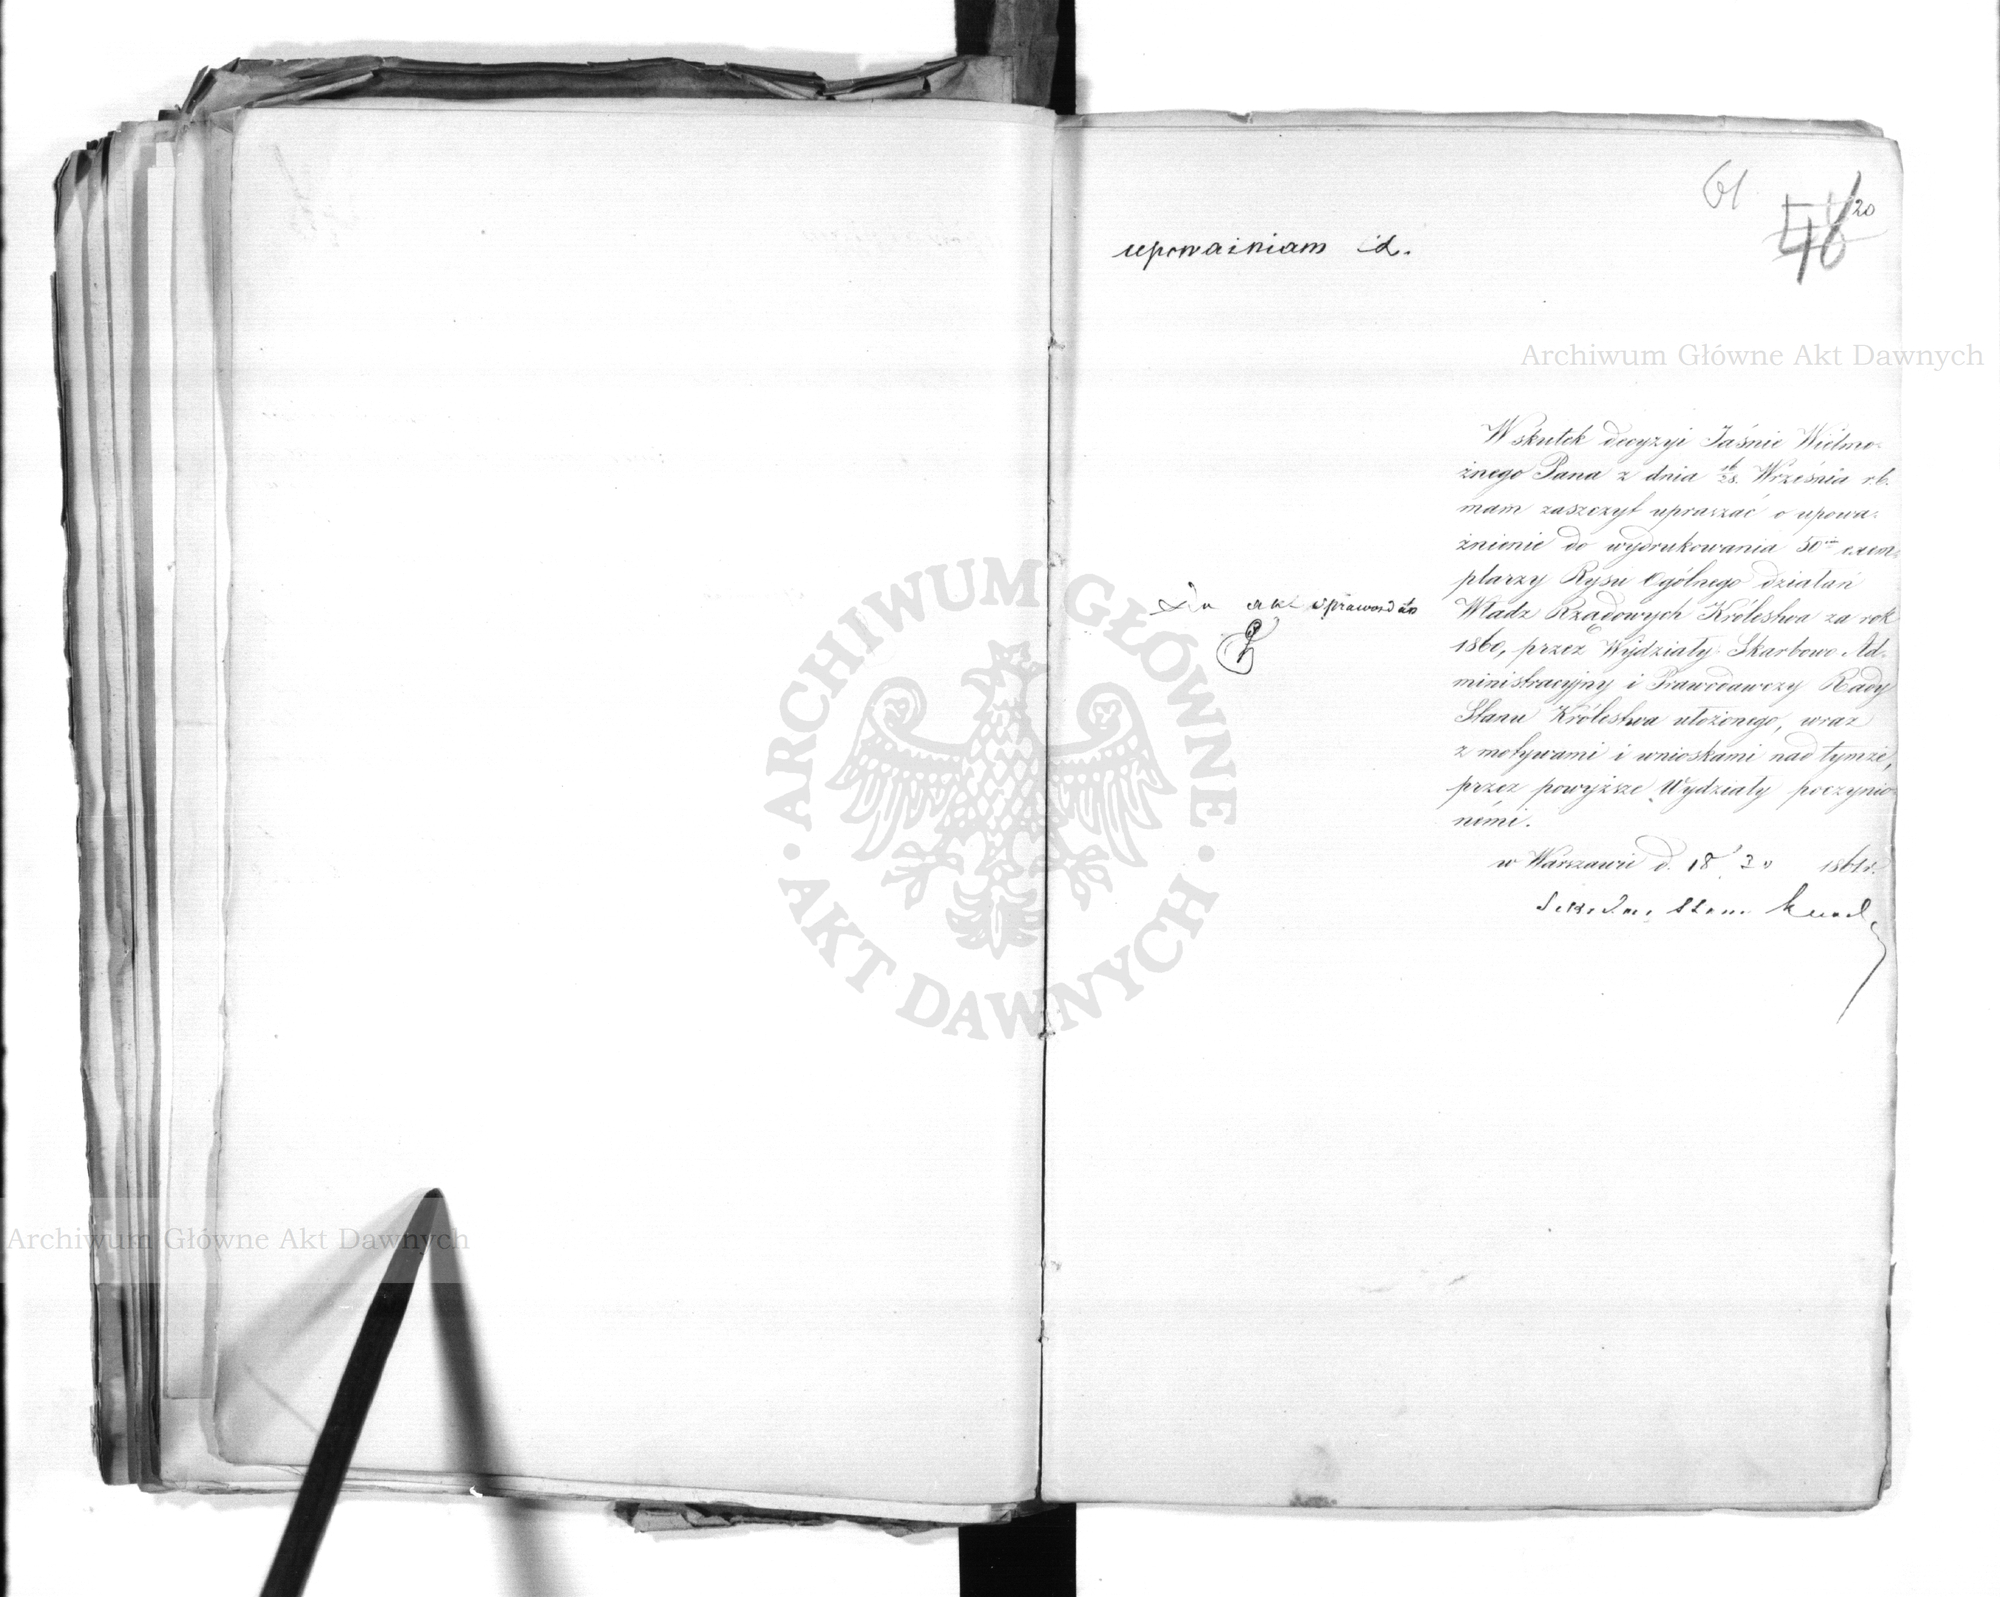 61
48
20
upoważniam id.
Archiwum Główne Akt Dawnych
Wskutek decyzyi Jaśnie Wielmo-
żnego Pana z dnia 16/28. Września r.b.
mam zaszczyt upraszać o upowa-
żnienie do wydrukowania 50 exem-
plarzy Rysu Ogólnego działań
Władz Rządowych Królestwa za rok
1860, przez Wydziały Skarbowo Ad-
ministracyjny i Prawodawczy Rady
Stanu Królestwa ułożonego, wraz
z motywami i wnioskami nad tymże,
przez powyższe Wydziały poczynio-
nemi.
w Warszawie d. 18/30 1861 r.
Stanu
akt sprawozdań
ARCHIWUM GŁÓWNE
AKT DAWNYCH
Archiwum Główne Akt Dawnych